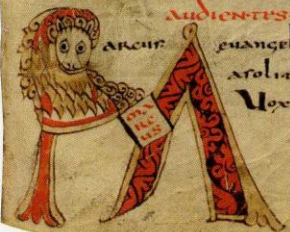 AUDIENTES
ARCUS EUANGEL
MA
RC
US
UOX